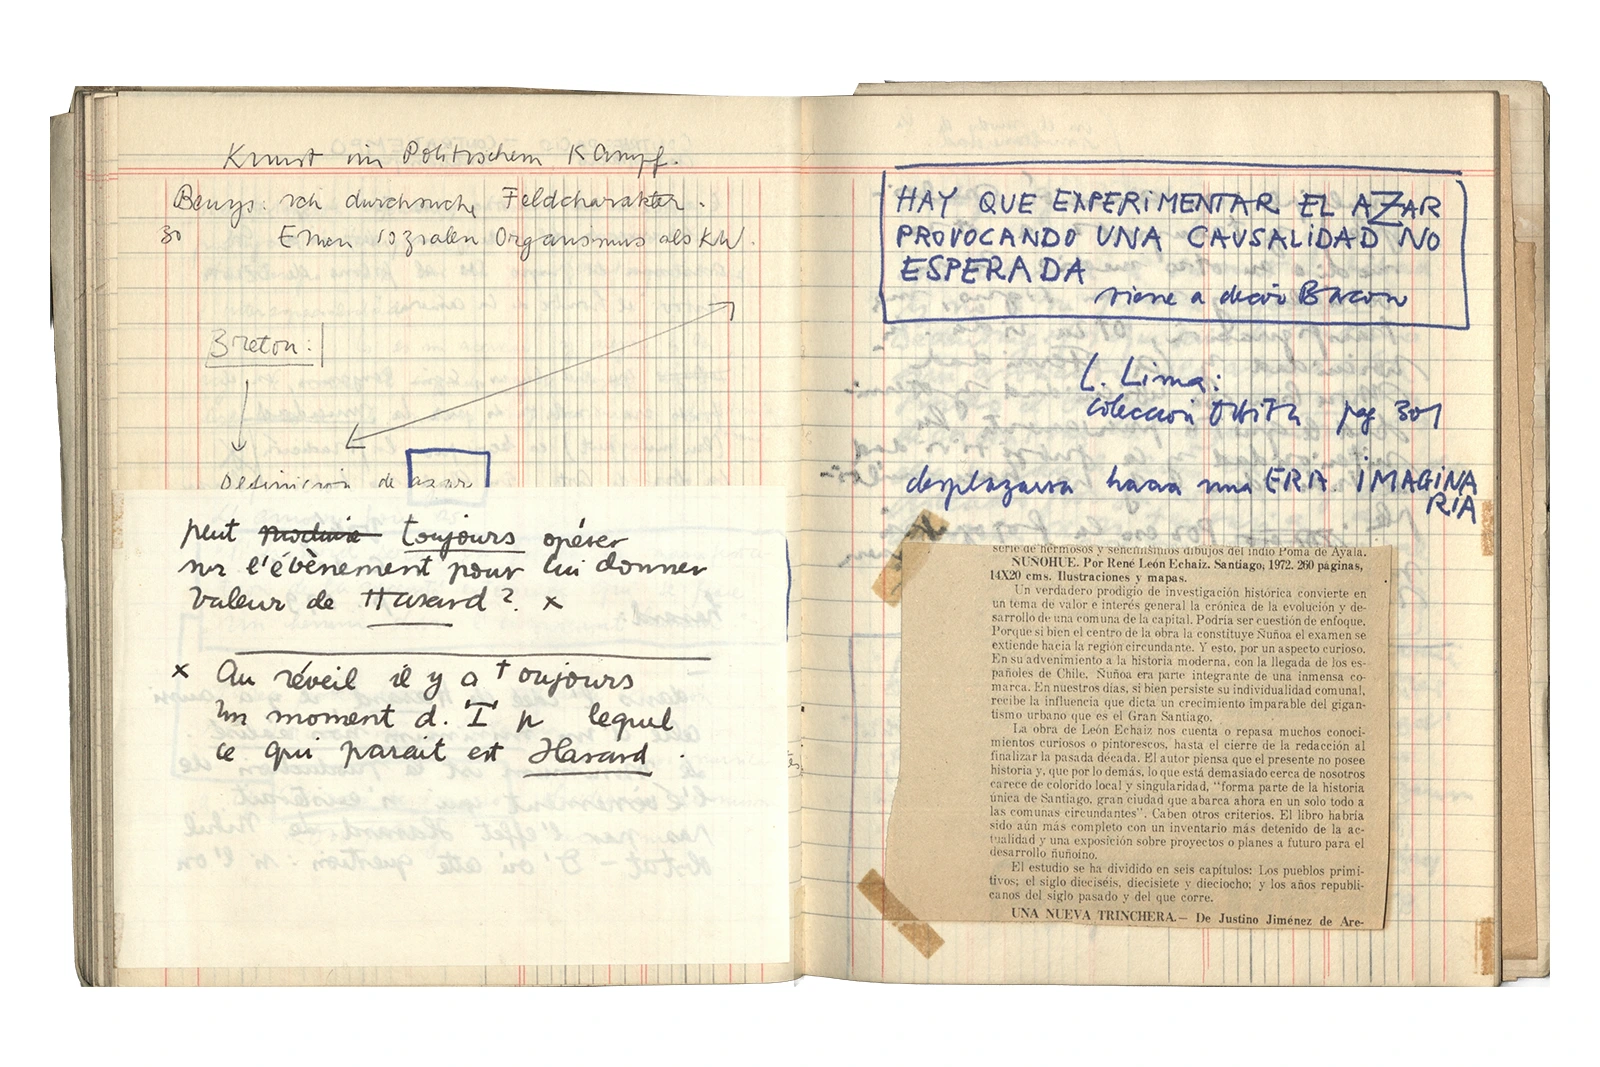 Kunst im Politischem Kampf.
Beuys: ich durchsuche Feldcharakter.
30 Einen sozialen Organismus als KW.
Breton:
Definición de azar
peut toujours opérer
sur l'évènement pour lui donner
valeur de Hasard?. x
x Au réveil il y a toujours
un moment d. I p lequel
ce qui parait est Hasard.
HAY QUE EXPERIMENTAR EL AZAR
PROVOCANDO UNA CAUSALIDAD NO
ESPERADA
viene a decir Bacon
L. Lima:
colección Orbita pag 301
desplazarsa hacia una ERA IMAGINA
RIA
serie de hermosos y sencillísimos dibujos del indio Poma de Ayala.
ÑUÑOHUE. Por René León Echaiz. Santiago, 1972. 260 páginas,
14X20 cms. Ilustraciones y mapas.
Un verdadero prodigio de investigación histórica convierte en
un tema de valor e interés general la crónica de la evolución y de-
sarrollo de una comuna de la capital. Podría ser cuestión de enfoque.
Porque si bien el centro de la obra la constituye Ñuñoa el examen se
extiende hacia la región circundante. Y esto, por un aspecto curioso.
En su advenimiento a la historia moderna, con la llegada de los es-
pañoles de Chile, Ñuñoa era parte integrante de una inmensa co-
marca. En nuestros días, si bien persiste su individualidad comunal,
recibe la influencia que dicta un crecimiento imparable del gigan-
tismo urbano que es el Gran Santiago.
La obra de León Echaiz nos cuenta o repasa muchos conoci-
mientos curiosos o pintorescos, hasta el cierre de la redacción al
finalizar la pasada década. El autor piensa que el presente no posee
historia y, que por lo demás, lo que está demasiado cerca de nosotros
carece de colorido local y singularidad, "forma parte de la historia
única de Santiago, gran ciudad que abarca ahora en un solo todo a
las comunas circundantes". Caben otros criterios. El libro habría
sido aún más completo con un inventario más detenido de la ac-
tualidad y una exposición sobre proyectos o planes a futuro para el
desarrollo ñuñoíno.
El estudio se ha dividido en seis capítulos: Los pueblos primi-
tivos; el siglo dieciséis, diecisiete y dieciocho; y los años republi-
canos del siglo pasado y del que corre.
UNA NUEVA TRINCHERA.— De Justino Jiménez de Are-